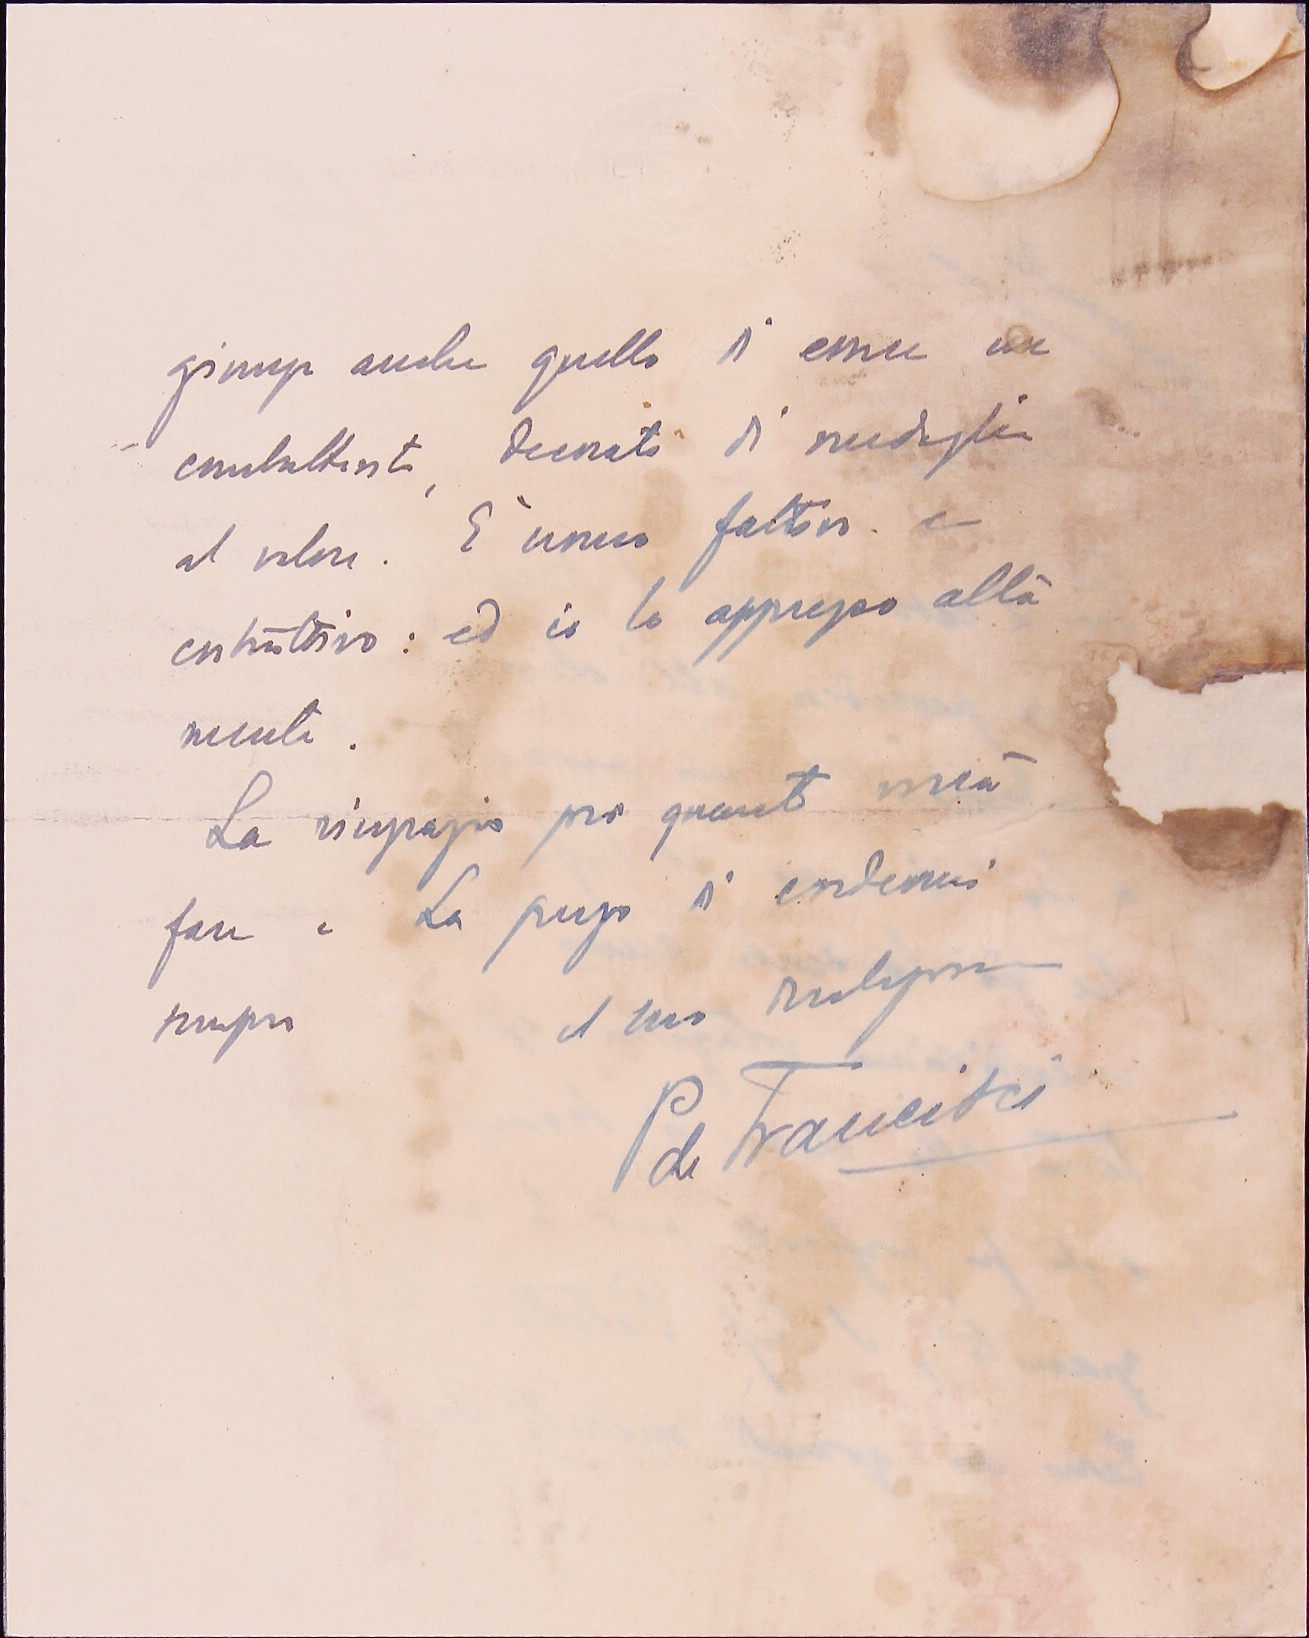 giunge anche quello di essere un
combattente, decorato di medaglia
al valore. È uomo fattivo e
costruttivo: ed io lo apprezzo alta
mente.
La ringrazio per quanto vorrà
fare e La prego di credermi
sempre il suo
P de Francisci